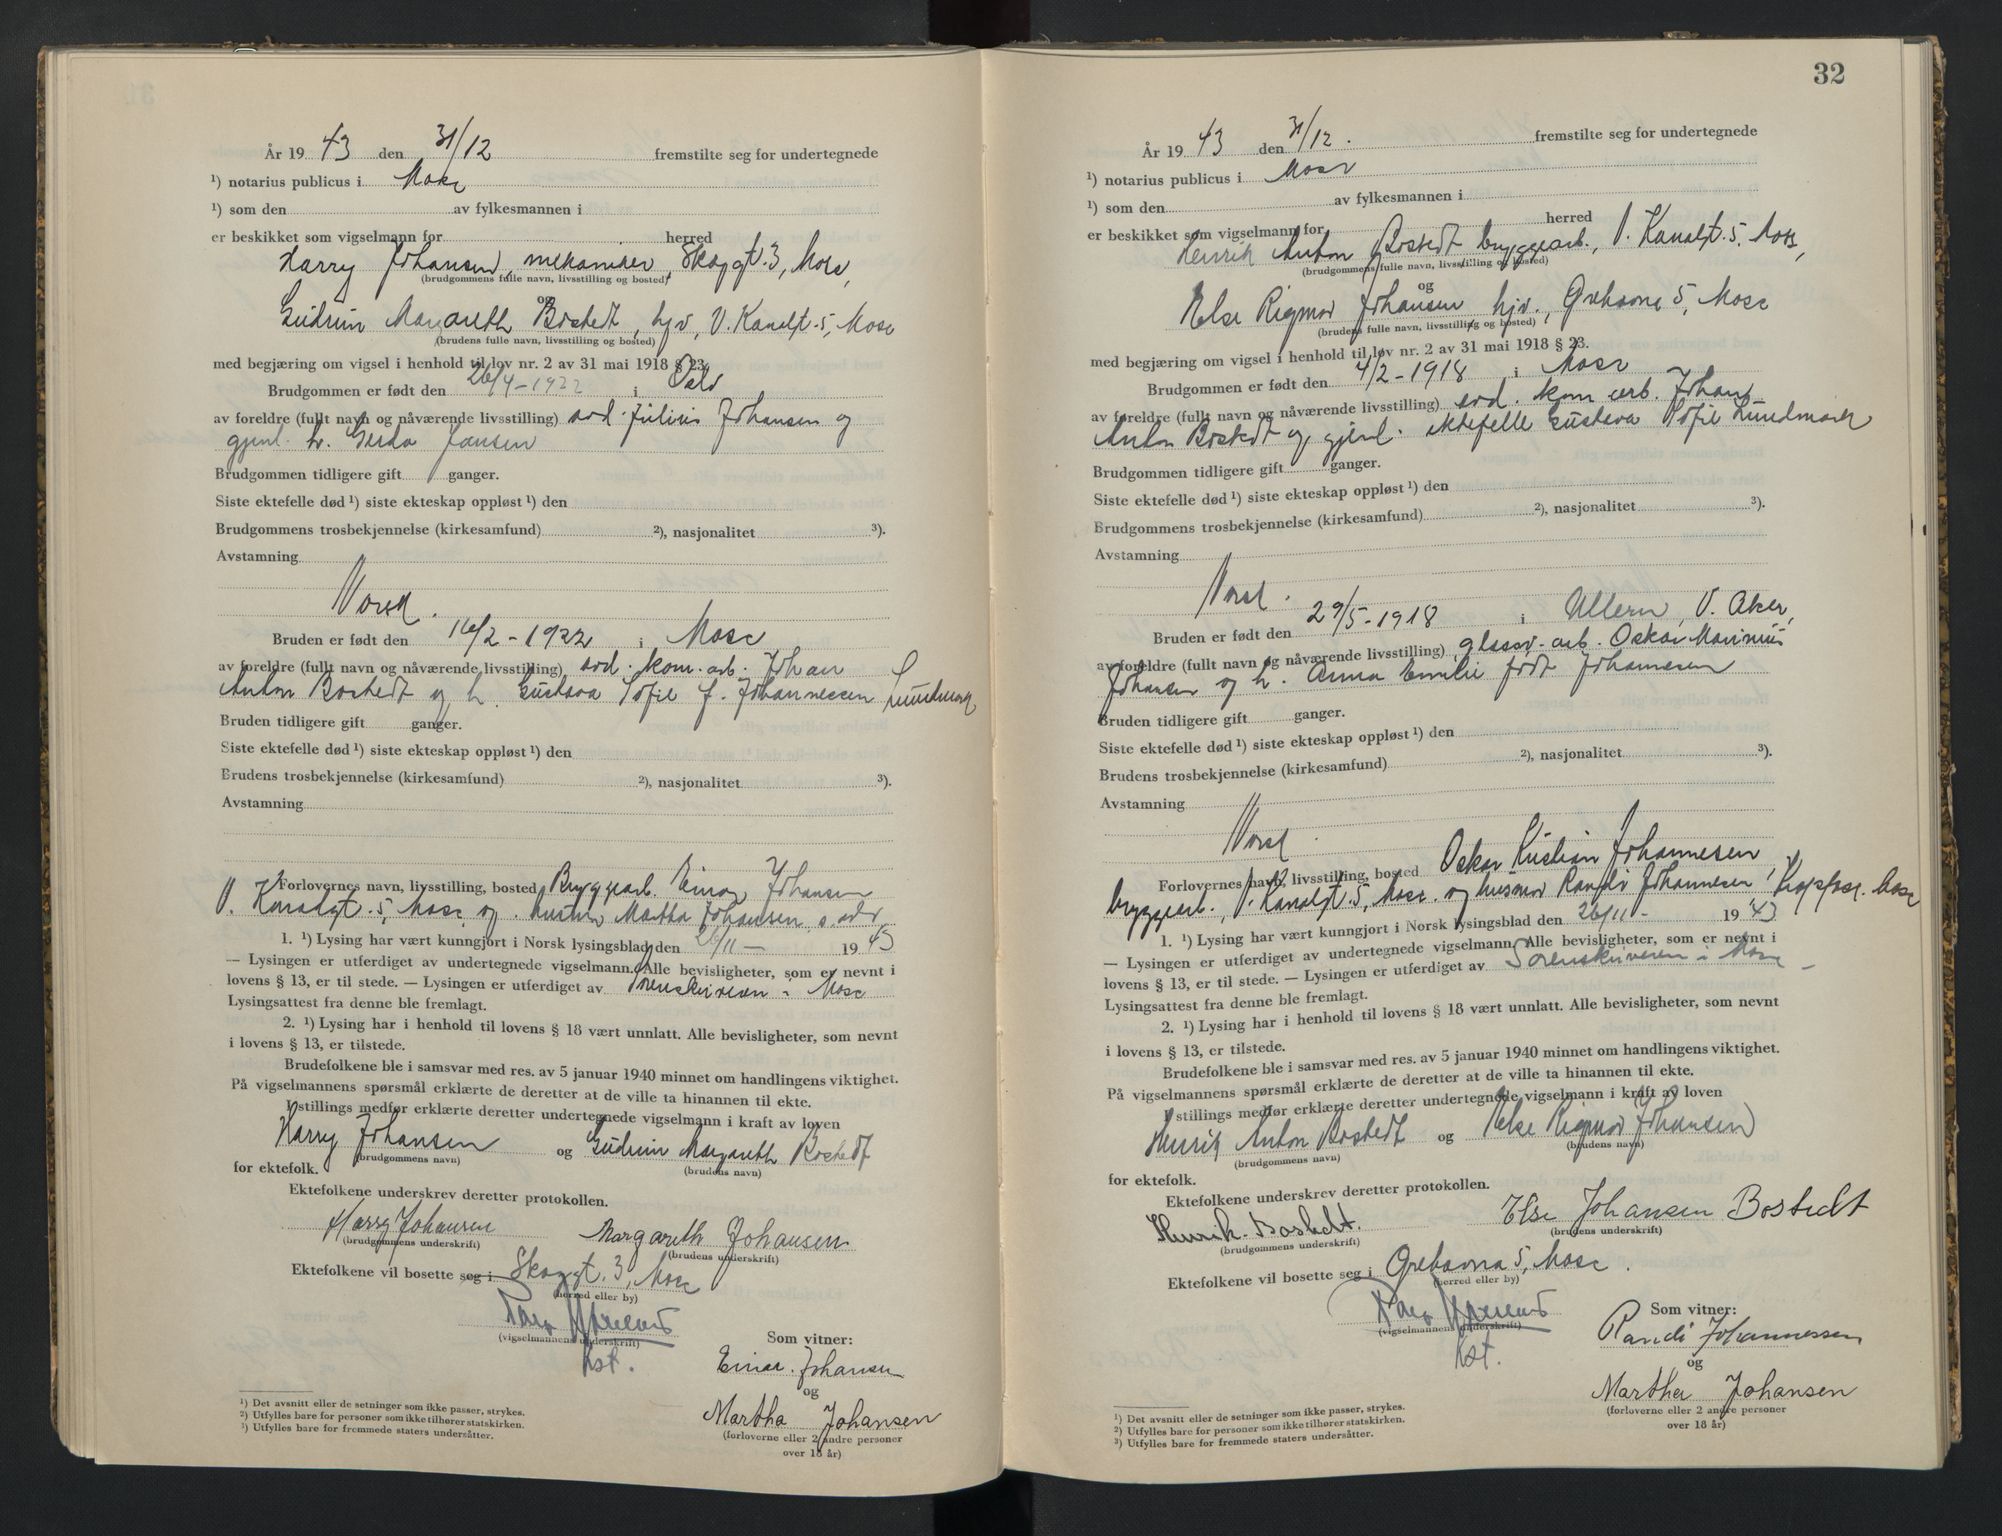 År 19 43 den 31/12 fremstilte seg for undertegnede
¹) notarius publicus i Moss
¹) som den av fylkesmannen i
er beskikket som vigselmann for herred
Harry Johansen, mekaniker, Skoggt. 3, Moss,
(brudgommens fulle navn, livsstilling og bosted)
og
Gudrun Margareth Bostedt, hjv, V. Kanalgt. 5, Moss
(brudens fulle navn, livsstilling og bosted)
med begjæring om vigsel i henhold til lov nr. 2 av 31 mai 1918 § 23.
Brudgommen er født den 26/4-1922 i Oslo
av foreldre (fullt navn og nåværende livsstilling) avd. Julius Johansen og
gjenl. h. Gerda Jansen
Brudgommen tidligere gift ganger.
Siste ektefelle død ¹) siste ekteskap oppløst ¹) den
Brudgommens trosbekjennelse (kirkesamfund) ²), nasjonalitet ³).
Avstamning
Norsk.
Bruden er født den 16/2-1922 i Moss
av foreldre (fullt navn og nåværende livsstilling) avd. kom. arb. Johan
Anton Bostedt og h. Gustava Sofie f. Johannessen Lundmark
Bruden tidligere gift ganger.
Siste ektefelle død ¹) siste ekteskap oppløst ¹) den
Brudens trosbekjennelse (kirkesamfund) ²), nasjonalitet ³).
Avstamning
Forlovernes navn, livsstilling, bosted Bryggearb. Einar Johansen
V. Kanalgt. 5, Moss og hustru Martha Johansen s. adr.
1. ¹) Lysing har vært kunngjort i Norsk lysingsblad den 26/11 - 19 43
— Lysingen er utferdiget av undertegnede vigselmann. Alle bevisligheter, som er nevnt i
lovens § 13, er til stede. — Lysingen er utferdiget av Sorenskriveren i Moss
Lysingsattest fra denne ble fremlagt.
2. ¹) Lysing har i henhold til lovens § 18 vært unnlatt. Alle bevisligheter, som nevnt
i lovens § 13, er tilstede.
Brudefolkene ble i samsvar med res. av 5 januar 1940 minnet om handlingens viktighet.
På vigselmannens spørsmål erklærte de deretter at de ville ta hinannen til ekte.
I stillings medfør erklærte deretter undertegnede vigselmann i kraft av loven
Harry Johansen og Gudrun Margareth Bostedt
(brudgommens navn) (brudens navn)
for ektefolk.
Ektefolkene underskrev deretter protokollen.
Harry Johansen Margareth Johansen
(brudgommens underskrift) (brudens underskrift)
Ektefolkene vil bosette seg i Skoggt. 3, Moss
(herred eller by)
(vigselmannens underskrift)
kst.
Som vitner:
Einar Johansen
og
Martha Johansen
(forloverne eller 2 andre personer
over 18 år)
¹) Det avsnitt eller de setninger som ikke passer, strykes.
²) Utfylles bare for personer som ikke tilhører statskirken.
³) Utfylles bare for fremmede staters undersåtter.
32
År 19 43 den 31/12. fremstilte seg for undertegnede
¹) notarius publicus i Moss
¹) som den av fylkesmannen i
er beskikket som vigselmann for herred
Henrik Anton Bostedt bryggearb., V. Kanalgt. 5, Moss,
(brudgommens fulle navn, livsstilling og bosted)
og
Else Rigmor Johansen hjv., Grebavna 5, Moss
(brudens fulle navn, livsstilling og bosted)
med begjæring om vigsel i henhold til lov nr. 2 av 31 mai 1918 § 23.
Brudgommen er født den 4/2-1918 i Moss
av foreldre (fullt navn og nåværende livsstilling) avd. kom arb. Johan
Anton Bostedt og gjenl. ektefelle Gustava Sofie Lundmark
Brudgommen tidligere gift ganger.
Siste ektefelle død ¹) siste ekteskap oppløst ¹) den
Brudgommens trosbekjennelse (kirkesamfund) ²), nasjonalitet ³).
Avstamning
Norsk.
Bruden er født den 29/5-1918 i Ullern, V. Aker,
av foreldre (fullt navn og nåværende livsstilling) glassv. arb. Oskar Marinius
Johansen og h. Anna Emilie født Johannesen
Bruden tidligere gift ganger.
Siste ektefelle død ¹) siste ekteskap oppløst ¹) den
Brudens trosbekjennelse (kirkesamfund) ²), nasjonalitet ³).
Avstamning
Norsk.
Forlovernes navn, livsstilling, bosted Oskar Kristian Johannesen
bryggearb., V. Kanalgt 5, Moss. og husmor Randi Johannesen, Moss
1. ¹) Lysing har vært kunngjort i Norsk lysingsblad den 26/11 - 19 43
— Lysingen er utferdiget av undertegnede vigselmann. Alle bevisligheter, som er nevnt i
lovens § 13, er til stede. — Lysingen er utferdiget av Sorenskriveren i Moss -
Lysingsattest fra denne ble fremlagt.
2. ¹) Lysing har i henhold til lovens § 18 vært unnlatt. Alle bevisligheter, som nevnt
i lovens § 13, er tilstede.
Brudefolkene ble i samsvar med res. av 5 januar 1940 minnet om handlingens viktighet.
På vigselmannens spørsmål erklærte de deretter at de ville ta hinannen til ekte.
I stillings medfør erklærte deretter undertegnede vigselmann i kraft av loven
Henrik Anton Bostedt og Else Rigmor Johansen
(brudgommens navn) (brudens navn)
for ektefolk.
Ektefolkene underskrev deretter protokollen.
Henrik Bostedt. Else Johansen Bostedt
(brudgommens underskrift) (brudens underskrift)
Ektefolkene vil bosette seg i Grebavna 5, Moss.
(herred eller by)
(vigselmannens underskrift)
kst.
Som vitner:
Randi Johannessen
og
Martha Johansen
(forloverne eller 2 andre personer
over 18 år)
¹) Det avsnitt eller de setninger som ikke passer, strykes.
²) Utfylles bare for personer som ikke tilhører statskirken.
³) Utfylles bare for fremmede staters undersåtter.